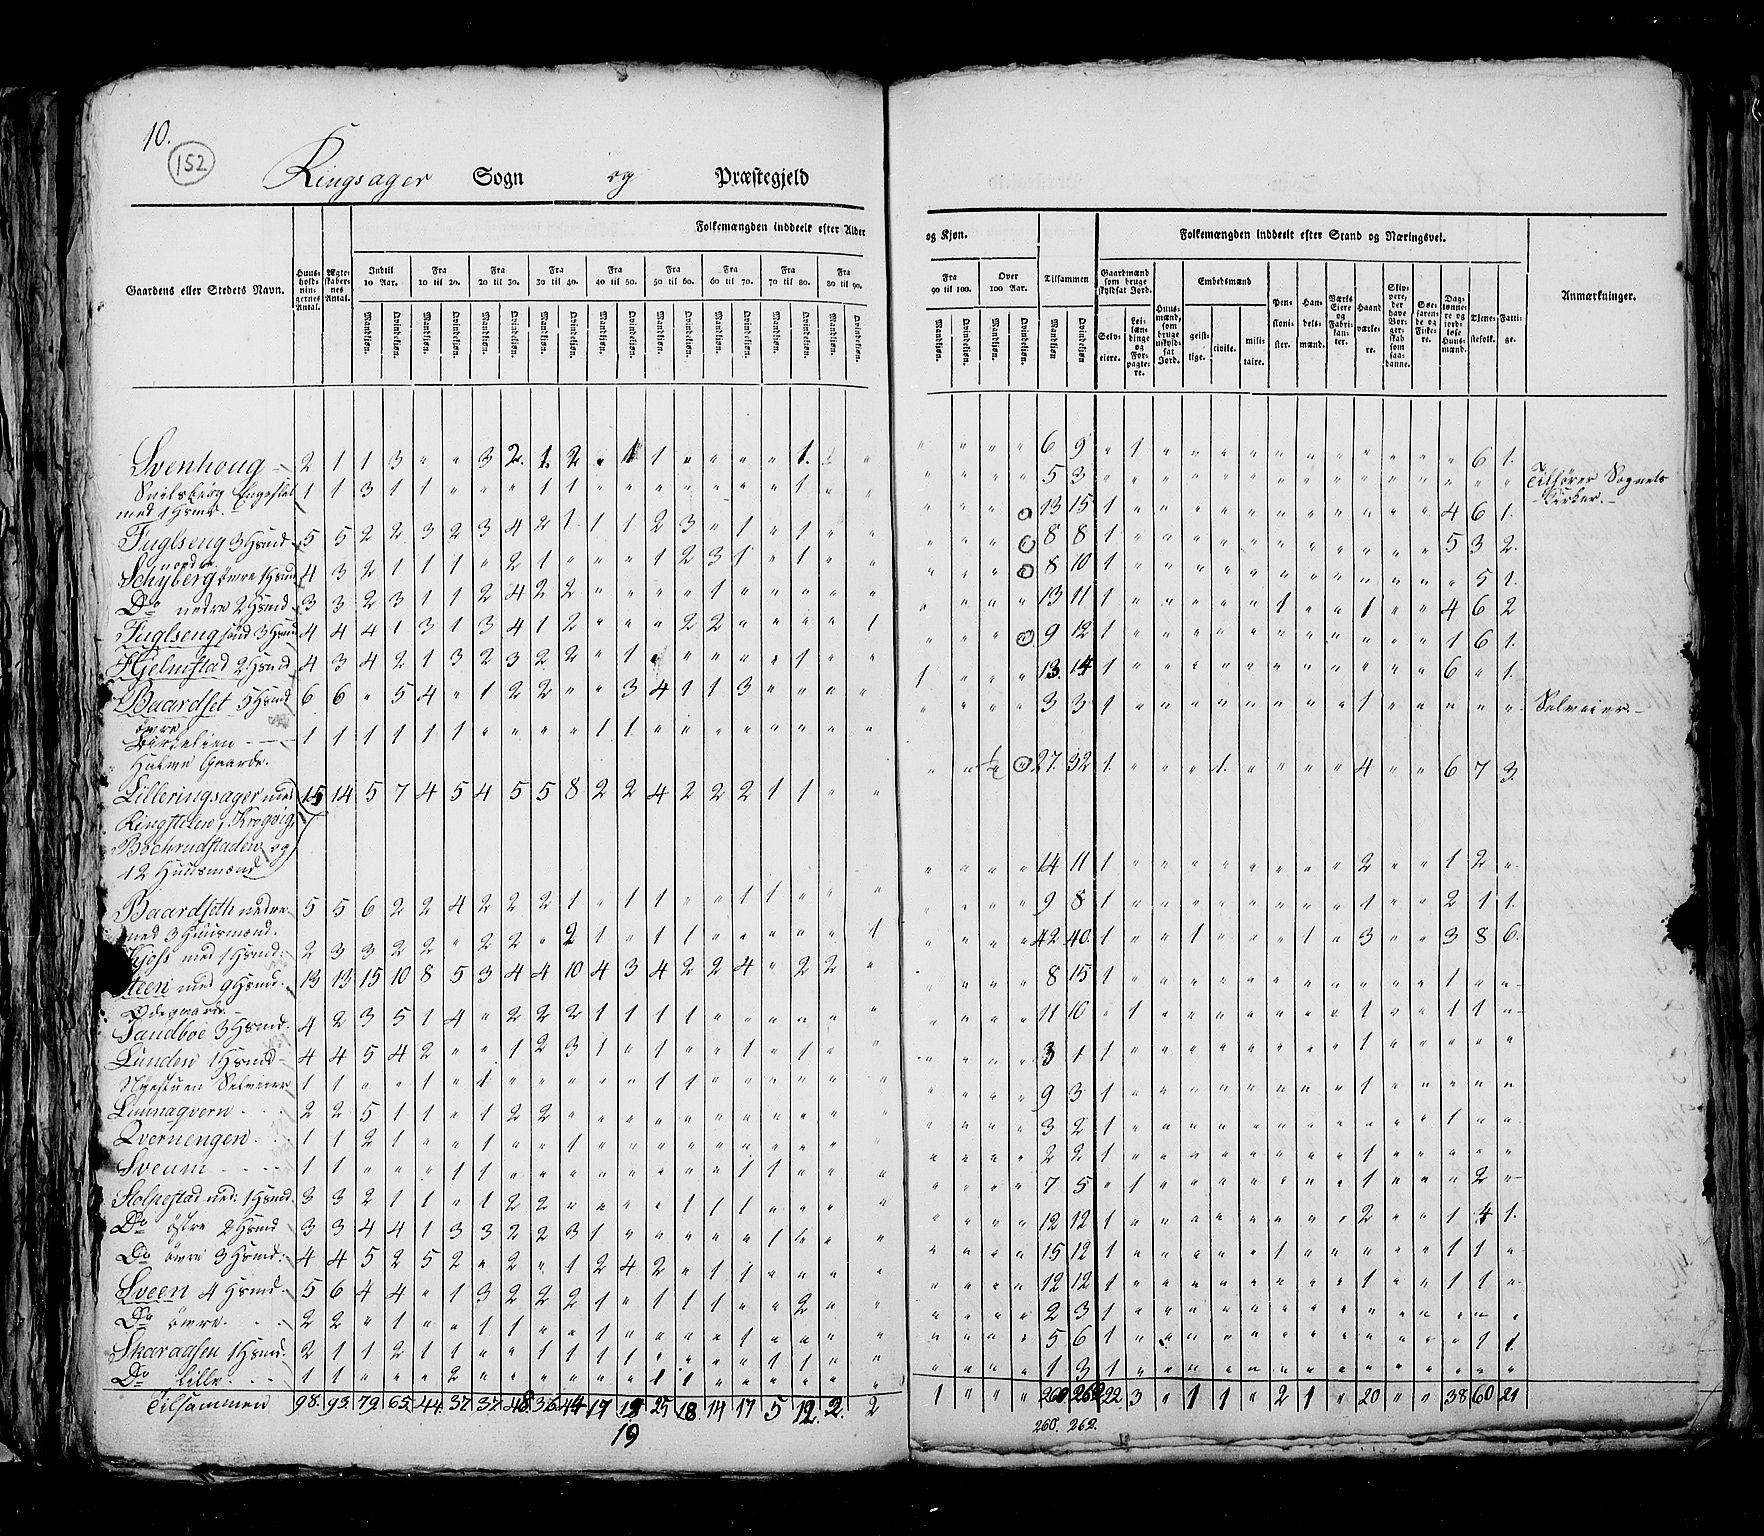 10.
152
Ringsager Sogn og Præstegjeld
Folkemængden inddeelt efter Alder og Kjøn.
Folkemængden inddeelt efter Stand og Næringsvei.
Gaardens eller Stedets Navn.
Huusholdningernes Antal.
Ægteskabernes Antal.
Indtil 10 Aar.
Fra 10 til 20.
Fra 20 til 30.
Fra 30 til 40.
Fra 40 til 50.
Fra 50 til 60.
Fra 60 til 70.
Fra 70 til 80.
Fra 80 til 90.
Fra 90 til 100.
Over 100 Aar.
Tilsammen
Mandkjøn. Qvindekjøn.
Gaardmænd som bruge skyldsat Jord.
Selveiere.
Leilændinge og Forpagtere.
Huusmænd, som bruge uskyldsat Jord.
Embedsmænd
geistlige.
civile.
militaire.
Pensionister.
Handelsmænd.
Værks Eiere og Fabrikanter.
Haandværkere.
Skippere, der have Borgerskab som saadanne.
Søefarende og Fiskere.
Daglønnere og jordløse Huusmænd.
Tjenestefolk.
Fattige.
Anmærkninger.
Svenhoug 2 1 1 3 " " 3 2. 1. 2 " 1 1 " " " " 1. " " " " " " 6 9 " 1 " " " " " " " " " " " 6 1.
med 1 Hsmd. 1 1 3 1 1 " " " 1 1 " " " " " " " 1 " " " " " " 5 3 Tilhører Sognets Kirker.
Fuglseng 3 Hsmd 5 5 2 2 3 2 3 4 2 1 1 1 2 3 " 1 " 1 " " 13 15 1 4 6 1.
nordre
Schyberg øvre 1 Hsmd 4 3 2 1 1 1 " 2 1 " " " 1 2 3 1 " 1 8 8 1 5 3 2.
Do nedre 2 Hsmd 3 3 2 3 1 1 2 4 2 2 " " " " 1 " 8 10 1 " 5 1.
Fuglseng sønd 3 Hsmd 4 4 4 1 3 1 3 4 1 2 " " " 2 2 " " " " 1 13 11 1 1 1 4 6 2
Hjelmstad 2 Hsmd 4 3 4 2 1 3 2 3 2 2 " 1 " " " " " 1 " " 9 12 1 1 6 1.
Baardset 5 Hsmd 6 6 " 5 4 " 1 2 2 " " 3 4 1 1 3 " " " " 1 " " " 13 14 1 6 " 1.
øvre
Birkelien 1 1 1 1 1 1 " " " " 1 1 " 3 3 1 1 Selveier.
Halve Gaarde.
Lilleringsager med 15 14 5 7 4 5 4 5 5 8 2 2 4 2 2 2 1 1 " " 27. 32 1. 1. 4 6 7 3
Ringstilen, Krogvig,
Bochrudstaden og
12 Huusmænd 14 11 1 2 1 2 "
Baardseth nedre 5 5 6 2 2 4 2 2 2 1 " 1 1 " " 1 1 " " "
med 3 Huusmænd. 9 8 1 1 2 1 1.
Kjos med 1 Hsmd. 2 3 3 2 2 " 2 2 " 2 1 " 1 1 " " " " " 1 42 40. 1 1 1 3 3 8 6.
Steen med 9 Hsmd. 13 13 15 10 8 5 3 4 4 10 4 3 4 2 2 4 " 2 2 " 8 15 1 1
Ødegaarde
Sandboe 3 Hsmd. 4 2 3 5 1 4 " 2 2 2 1 1 1 1 11 10 " 1 1 1 1
Lunden 1 Hsmd 4 4 5 4 2 " " 1 2 3 1 " 1 " " 1 " 1 3 1 1 1
Nyestuen Selveier 1 1 " " 1 " 1 " " " " " 1 1 9 3 1 1
Lunnaqvern 2 2 5 1 1 " 1 2 2 3 2 1 1
Qvernengen 1 1 2 1 " " 1 " " 1 2 2 1 1
Sveum 1 1 " " " 1 1 7 5 " 1 1 2
Stolpestad ned: 1 Hsmd. 3 3 2 1 1 " 1 2 2 12 12 1 2 1 4 1.
Do østre 2 Hsmd 3 3 4 4 1 3 3 2 2 3 1 15 12 1 1 1 1
Do øvre 3 Hsmd. 4 4 5 2 5 2 " 2 " 1 2 4 2 " 1 1 12 12 1 1 1 1
Sveen 4 Hsmd. 5 6 4 4 " 1 3 2 2 2 1 " 1 1 1 " " 2 2 3 1
Do øvre. 2 2 " 1 " " 1 1 5 6 1 1 1.
Skaraasen 1 Hsmd. 2 1 1 2 1 1 " " 1 1 1 1 1 3 1
Do Lille 1 1 " " " 2
Tilsammen 98. 93. 79 65. 44 37 37 48. 36 44 17 25 18 14 17 5 12 2. 2 1 " " " 260 262 22 3 " 1 1 " 2 1 " 20 " " 38 60 21
19
260. 262.